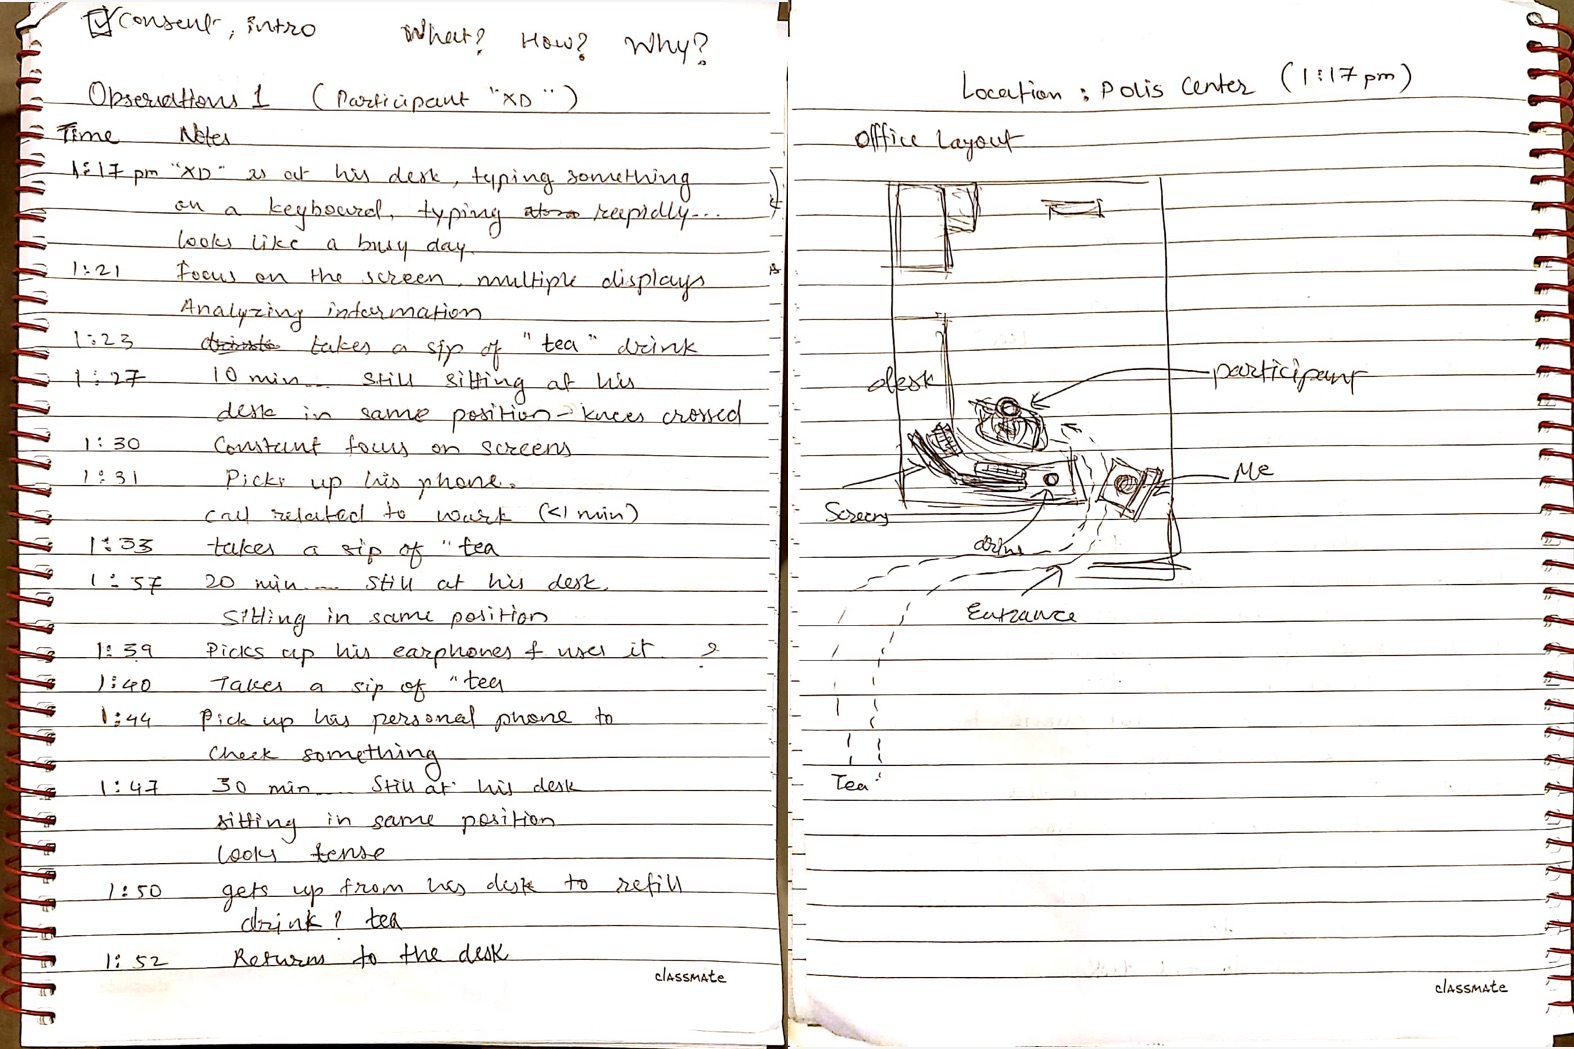 Consent, intro
What? How? Why?
Observations 1 (Participant "XD")
Time Notes
1:17 pm "XD" is at his desk, typing something
on a keyboard, typing rapidly...
looks like a busy day
1:21 Focus on the screen, multiple displays
Analyzing information
1:23 takes a sip of "tea" drink
1:27 10 min.... Still sitting at his
desk in same position - knees crossed
1:30 Constant focus on screens
1:31 Picks up his phone.
call related to work (<1 min)
1:33 takes a sip of "tea
1:37 20 min.... Still at his desk,
sitting in same position
1:39 Picks up his earphones & uses it ?
1:40 Takes a sip of "tea
1:44 Pick up his personal phone to
check something
1:47 30 min.... Still at his desk
sitting in same position
looks tense
1:50 gets up from his desk to refill
drink? tea
1:52 Returns to the desk
classmate
Location : Polis Center (1:17 pm)
Office Layout
desk
participant
Me
Screens
Entrance
Tea
classmate